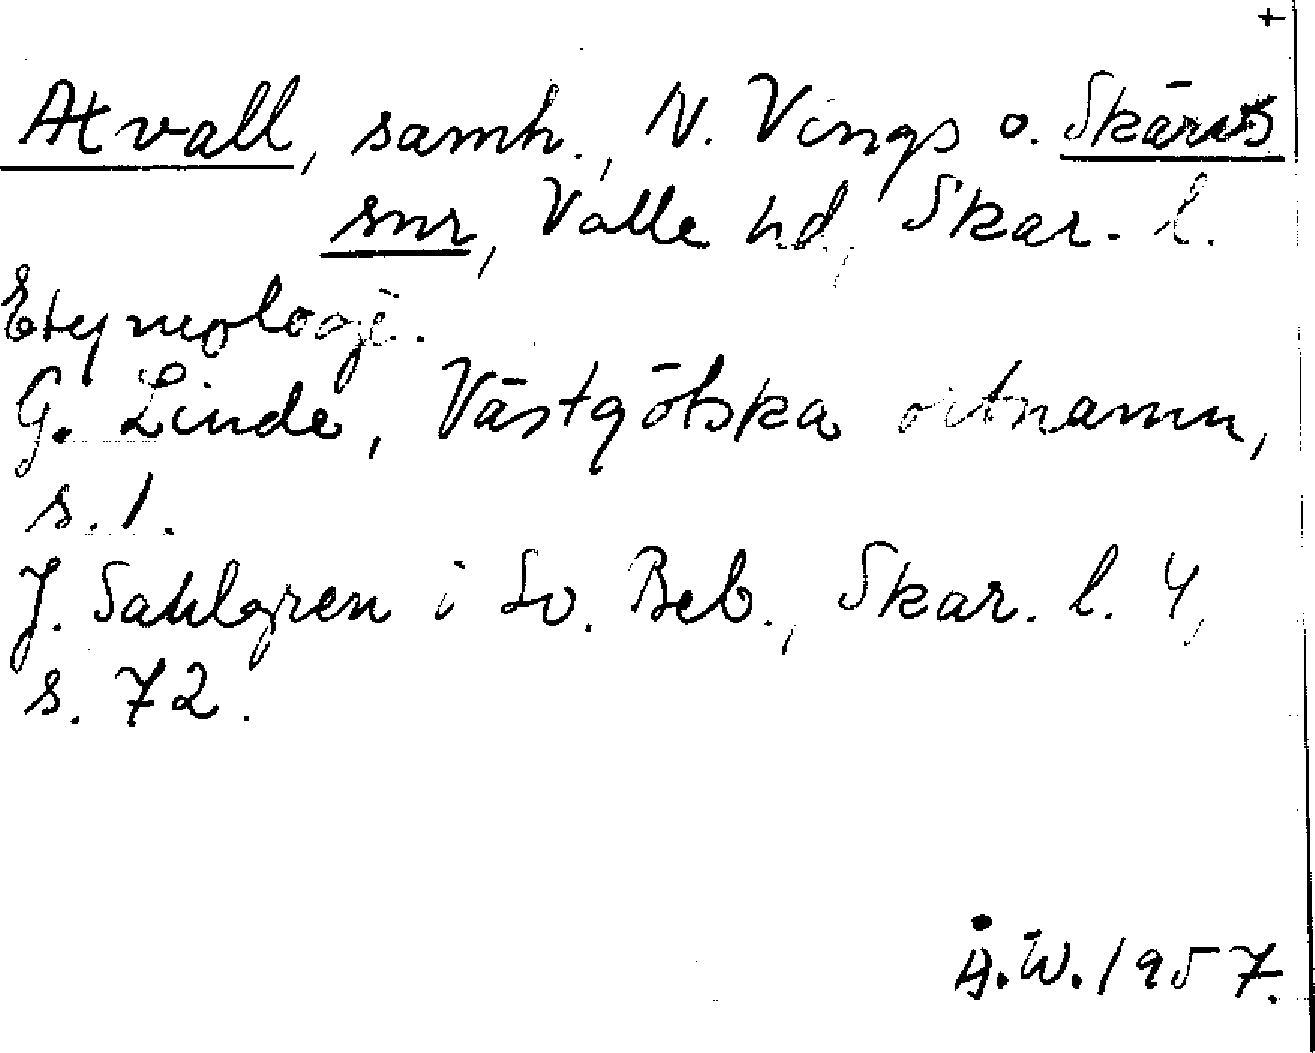 +
Atvall, samh., N. Vings o. Skärvs
snr, Valle hd, Skar. l.
Etymologi.
G. Linde, Västgötska ortnamn,
s. 1.
J. Sahlgren i Sv. Beb., Skar. l. 4,
s. 72.
Å.W. 1957.